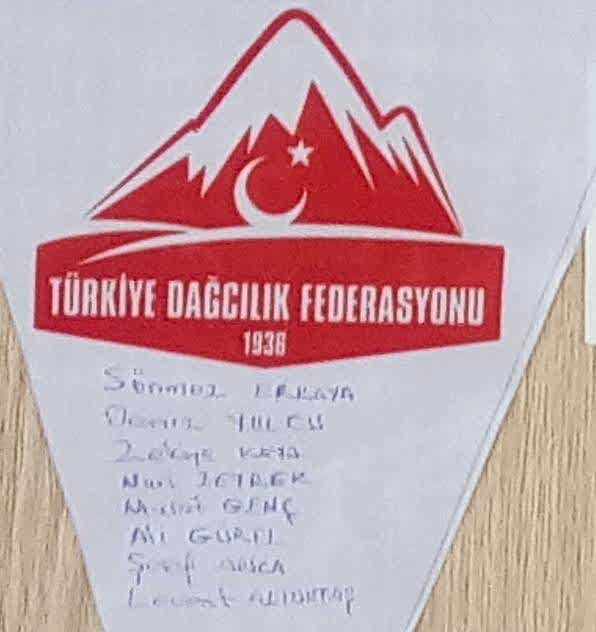 TÜRKİYE DAĞCILIK FEDERASYONU
1936
Sönmez ERKAYA
Deniz
Zekiye KAYA
Nuri ZEYREK
GENÇ
Ali GÜREL
Levent ALTUNTAŞ